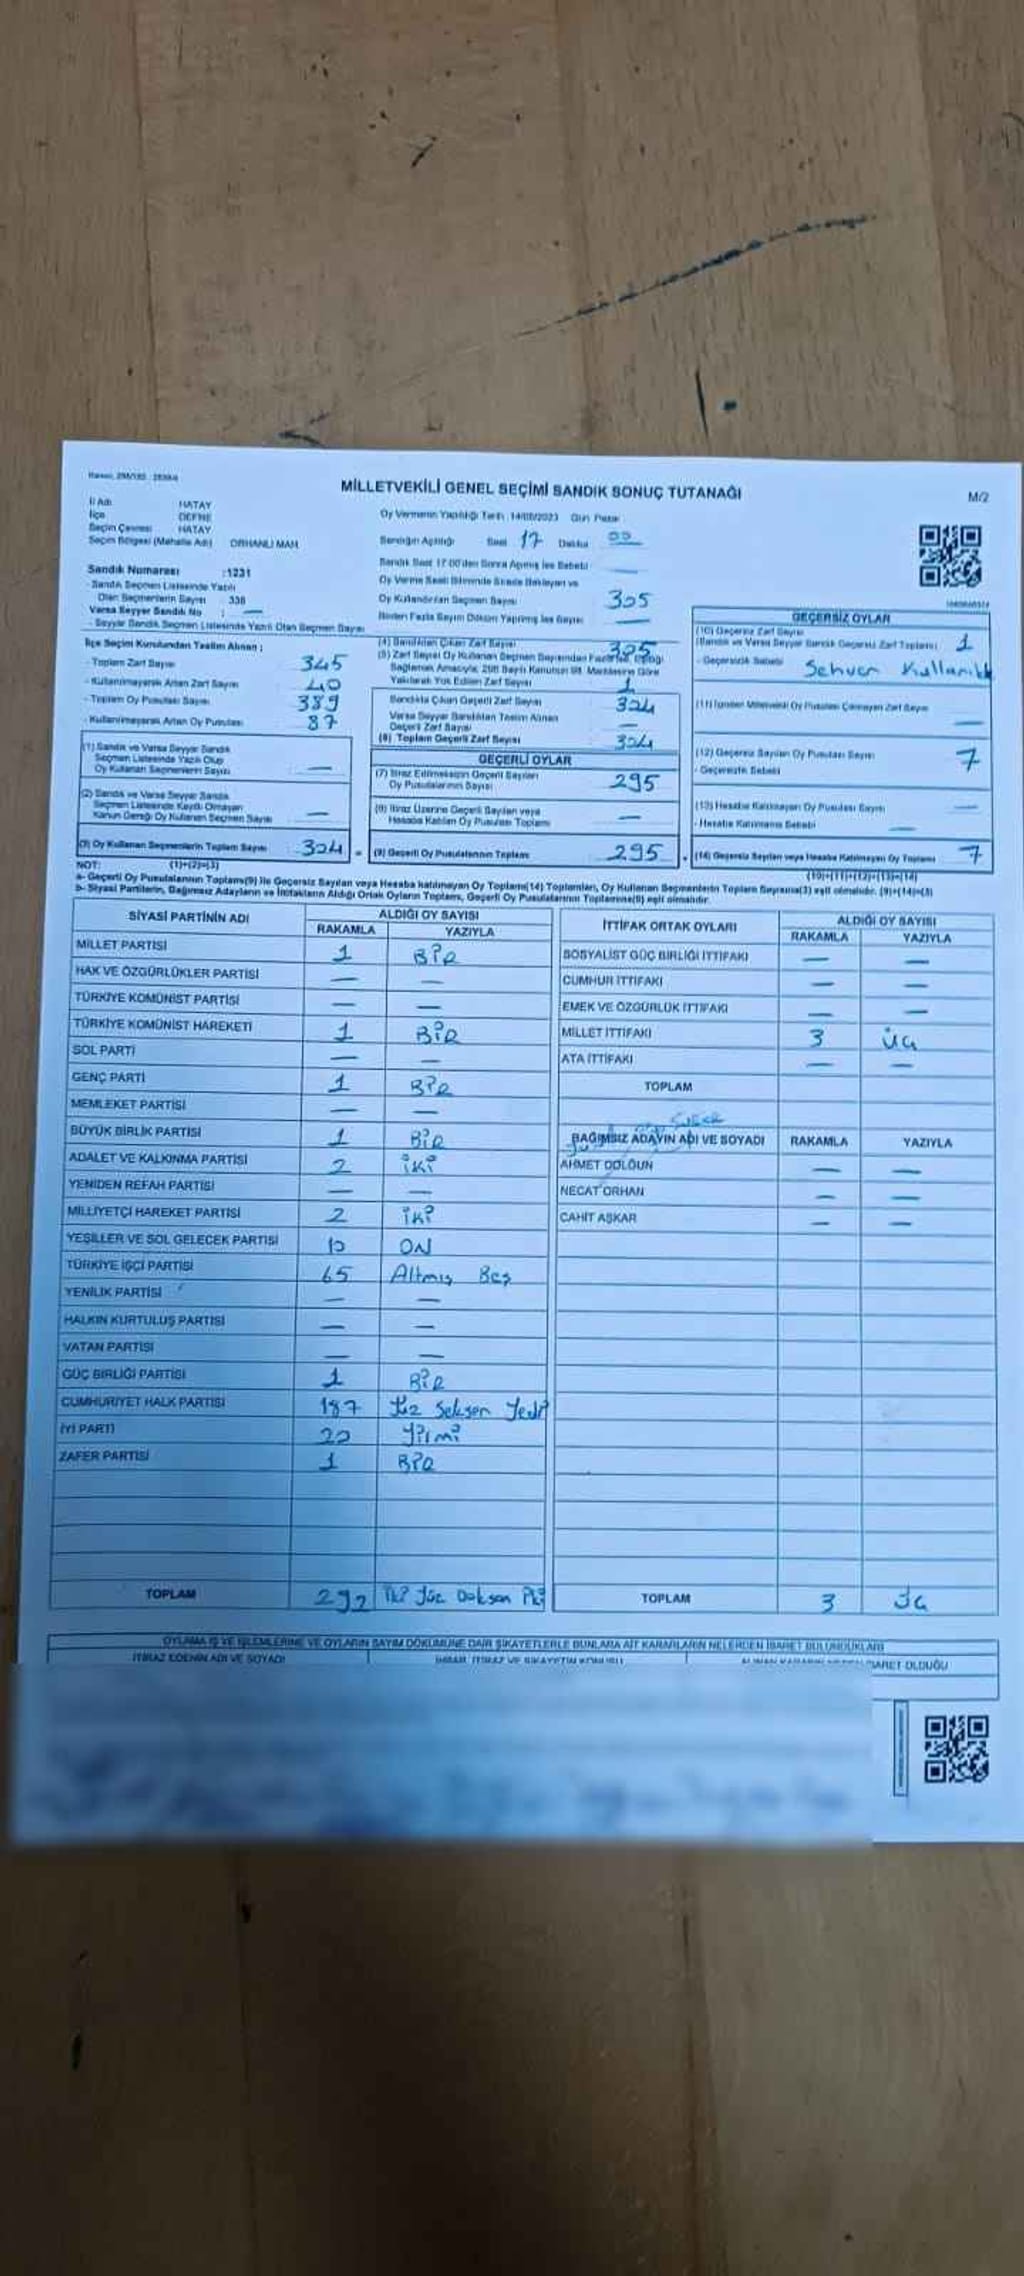 MİLLETVEKİLİ GENEL SEÇİMİ SANDIK SONUÇ TUTANAĞI
M/2
İl Adı HATAY
İlçe DEFNE
Seçim Çevresi HATAY
Seçim Bölgesi (Mahalle Adı) ORHANLI MAH.
Sandık Numarası :1231
- Sandık Seçmen Listesinde Yazılı
Olan Seçmenlerin Sayısı 338
Varsa Seyyar Sandık No : —
- Seyyar Sandık Seçmen Listesinde Yazılı Olan Seçmen Sayısı
Oy Vermenin Yapıldığı Tarih :14/05/2023 Gün Pazar
Sandığın Açıldığı Saat 17 Dakika 00
Sandık Saat 17:00'den Sonra Açılmış İse Sebebi —
Oy Verme Saati Bitiminde Sırada Bekleyen ve
Oy Kullandırılan Seçmen Sayısı 305
Birden Fazla Sayım Döküm Yapılmış İse Sayısı —
İlçe Seçim Kurulundan Teslim Alınan ;
- Toplam Zarf Sayısı 345
- Kullanılmayarak Artan Zarf Sayısı 40
- Toplam Oy Pusulası Sayısı 389
- Kullanılmayarak Artan Oy Pusulası 87
(1) Sandık ve Varsa Seyyar Sandık
Seçmen Listesinde Yazılı Olup
Oy Kullanan Seçmenlerin Sayısı —
(2) Sandık ve Varsa Seyyar Sandık
Seçmen Listesinde Kaydı Olmayan
Kanun Gereği Oy Kullanan Seçmen Sayısı —
(3) Oy Kullanan Seçmenlerin Toplam Sayısı 304
(1)+(2)=(3)
(4) Sandıktan Çıkan Zarf Sayısı 305
(5) Zarf Sayısı Oy Kullanan Seçmen Sayısından Fazla İse, Eşitliği
Sağlamak Amacıyla, 298 Sayılı Kanunun 98. Maddesine Göre
Yakılarak Yok Edilen Zarf Sayısı 1
Sandıkta Çıkan Geçerli Zarf Sayısı 304
Varsa Seyyar Sandıktan Teslim Alınan
Geçerli Zarf Sayısı —
(6) Toplam Geçerli Zarf Sayısı 304
GEÇERLİ OYLAR
(7) İtiraz Edilmeksizin Geçerli Sayılan
Oy Pusulalarının Sayısı 295
(8) İtiraz Üzerine Geçerli Sayılan veya
Hesaba Katılan Oy Pusulası Toplamı —
(9) Geçerli Oy Pusulalarının Toplamı 295
GEÇERSİZ OYLAR
(10) Geçersiz Zarf Sayısı
(Sandık ve Varsa Seyyar Sandık Geçersiz Zarf Toplamı) 1
- Geçersizlik Sebebi Sehven Kullanıldı
(12) Geçersiz Sayılan Oy Pusulası Sayısı 7
- Geçersizlik Sebebi
(13) Hesaba Katılmayan Oy Pusulası Sayısı —
- Hesaba Katılmama Sebebi —
(14) Geçersiz Sayılan veya Hesaba Katılmayan Oy Toplamı 7
(10)+(11)+(12)+(13)=(14)
NOT:
a- Geçerli Oy Pusulalarının Toplamı(9) ile Geçersiz Sayılan veya Hesaba katılmayan Oy Toplamı(14) Toplamları, Oy Kullanan Seçmenlerin Toplam Sayısına(3) eşit olmalıdır. (9)+(14)=(3)
b- Siyasi Partilerin, Bağımsız Adayların ve İttifakların Aldığı Ortak Oyların Toplamı, Geçerli Oy Pusulalarının Toplamına(9) eşit olmalıdır.
SİYASİ PARTİNİN ADI ALDIĞI OY SAYISI
RAKAMLA YAZIYLA
MİLLET PARTİSİ 1 BİR
HAK VE ÖZGÜRLÜKLER PARTİSİ — —
TÜRKİYE KOMÜNİST PARTİSİ — —
TÜRKİYE KOMÜNİST HAREKETİ 1 BİR
SOL PARTİ — —
GENÇ PARTİ 1 BİR
MEMLEKET PARTİSİ — —
BÜYÜK BİRLİK PARTİSİ 1 BİR
ADALET VE KALKINMA PARTİSİ 2 İKİ
YENİDEN REFAH PARTİSİ — —
MİLLİYETÇİ HAREKET PARTİSİ 2 İKİ
YEŞİLLER VE SOL GELECEK PARTİSİ 10 ON
TÜRKİYE İŞÇİ PARTİSİ 65 Altmış Beş
YENİLİK PARTİSİ — —
HALKIN KURTULUŞ PARTİSİ — —
VATAN PARTİSİ — —
GÜÇ BİRLİĞİ PARTİSİ 1 BİR
CUMHURİYET HALK PARTİSİ 187 Yüz Seksen Yedi
İYİ PARTİ 20 Yirmi
ZAFER PARTİSİ 1 BİR
TOPLAM 292 İki Yüz Doksan İki
İTTİFAK ORTAK OYLARI ALDIĞI OY SAYISI
RAKAMLA YAZIYLA
SOSYALİST GÜÇ BİRLİĞİ İTTİFAKI — —
CUMHUR İTTİFAKI — —
EMEK VE ÖZGÜRLÜK İTTİFAKI — —
MİLLET İTTİFAKI 3 Üç
ATA İTTİFAKI — —
TOPLAM
BAĞIMSIZ ADAYIN ADI VE SOYADI RAKAMLA YAZIYLA
AHMET DOLĞUN — —
NECAT ORHAN — —
CAHİT AŞKAR — —
TOPLAM 3 Üç
OYLAMA İŞ VE İŞLEMLERİNE VE OYLARIN SAYIM DÖKÜMÜNE DAİR ŞİKAYETLERLE BUNLARA AİT KARARLARIN NELERDEN İBARET BULUNDUKLARI
İTİRAZ EDENİN ADI VE SOYADI